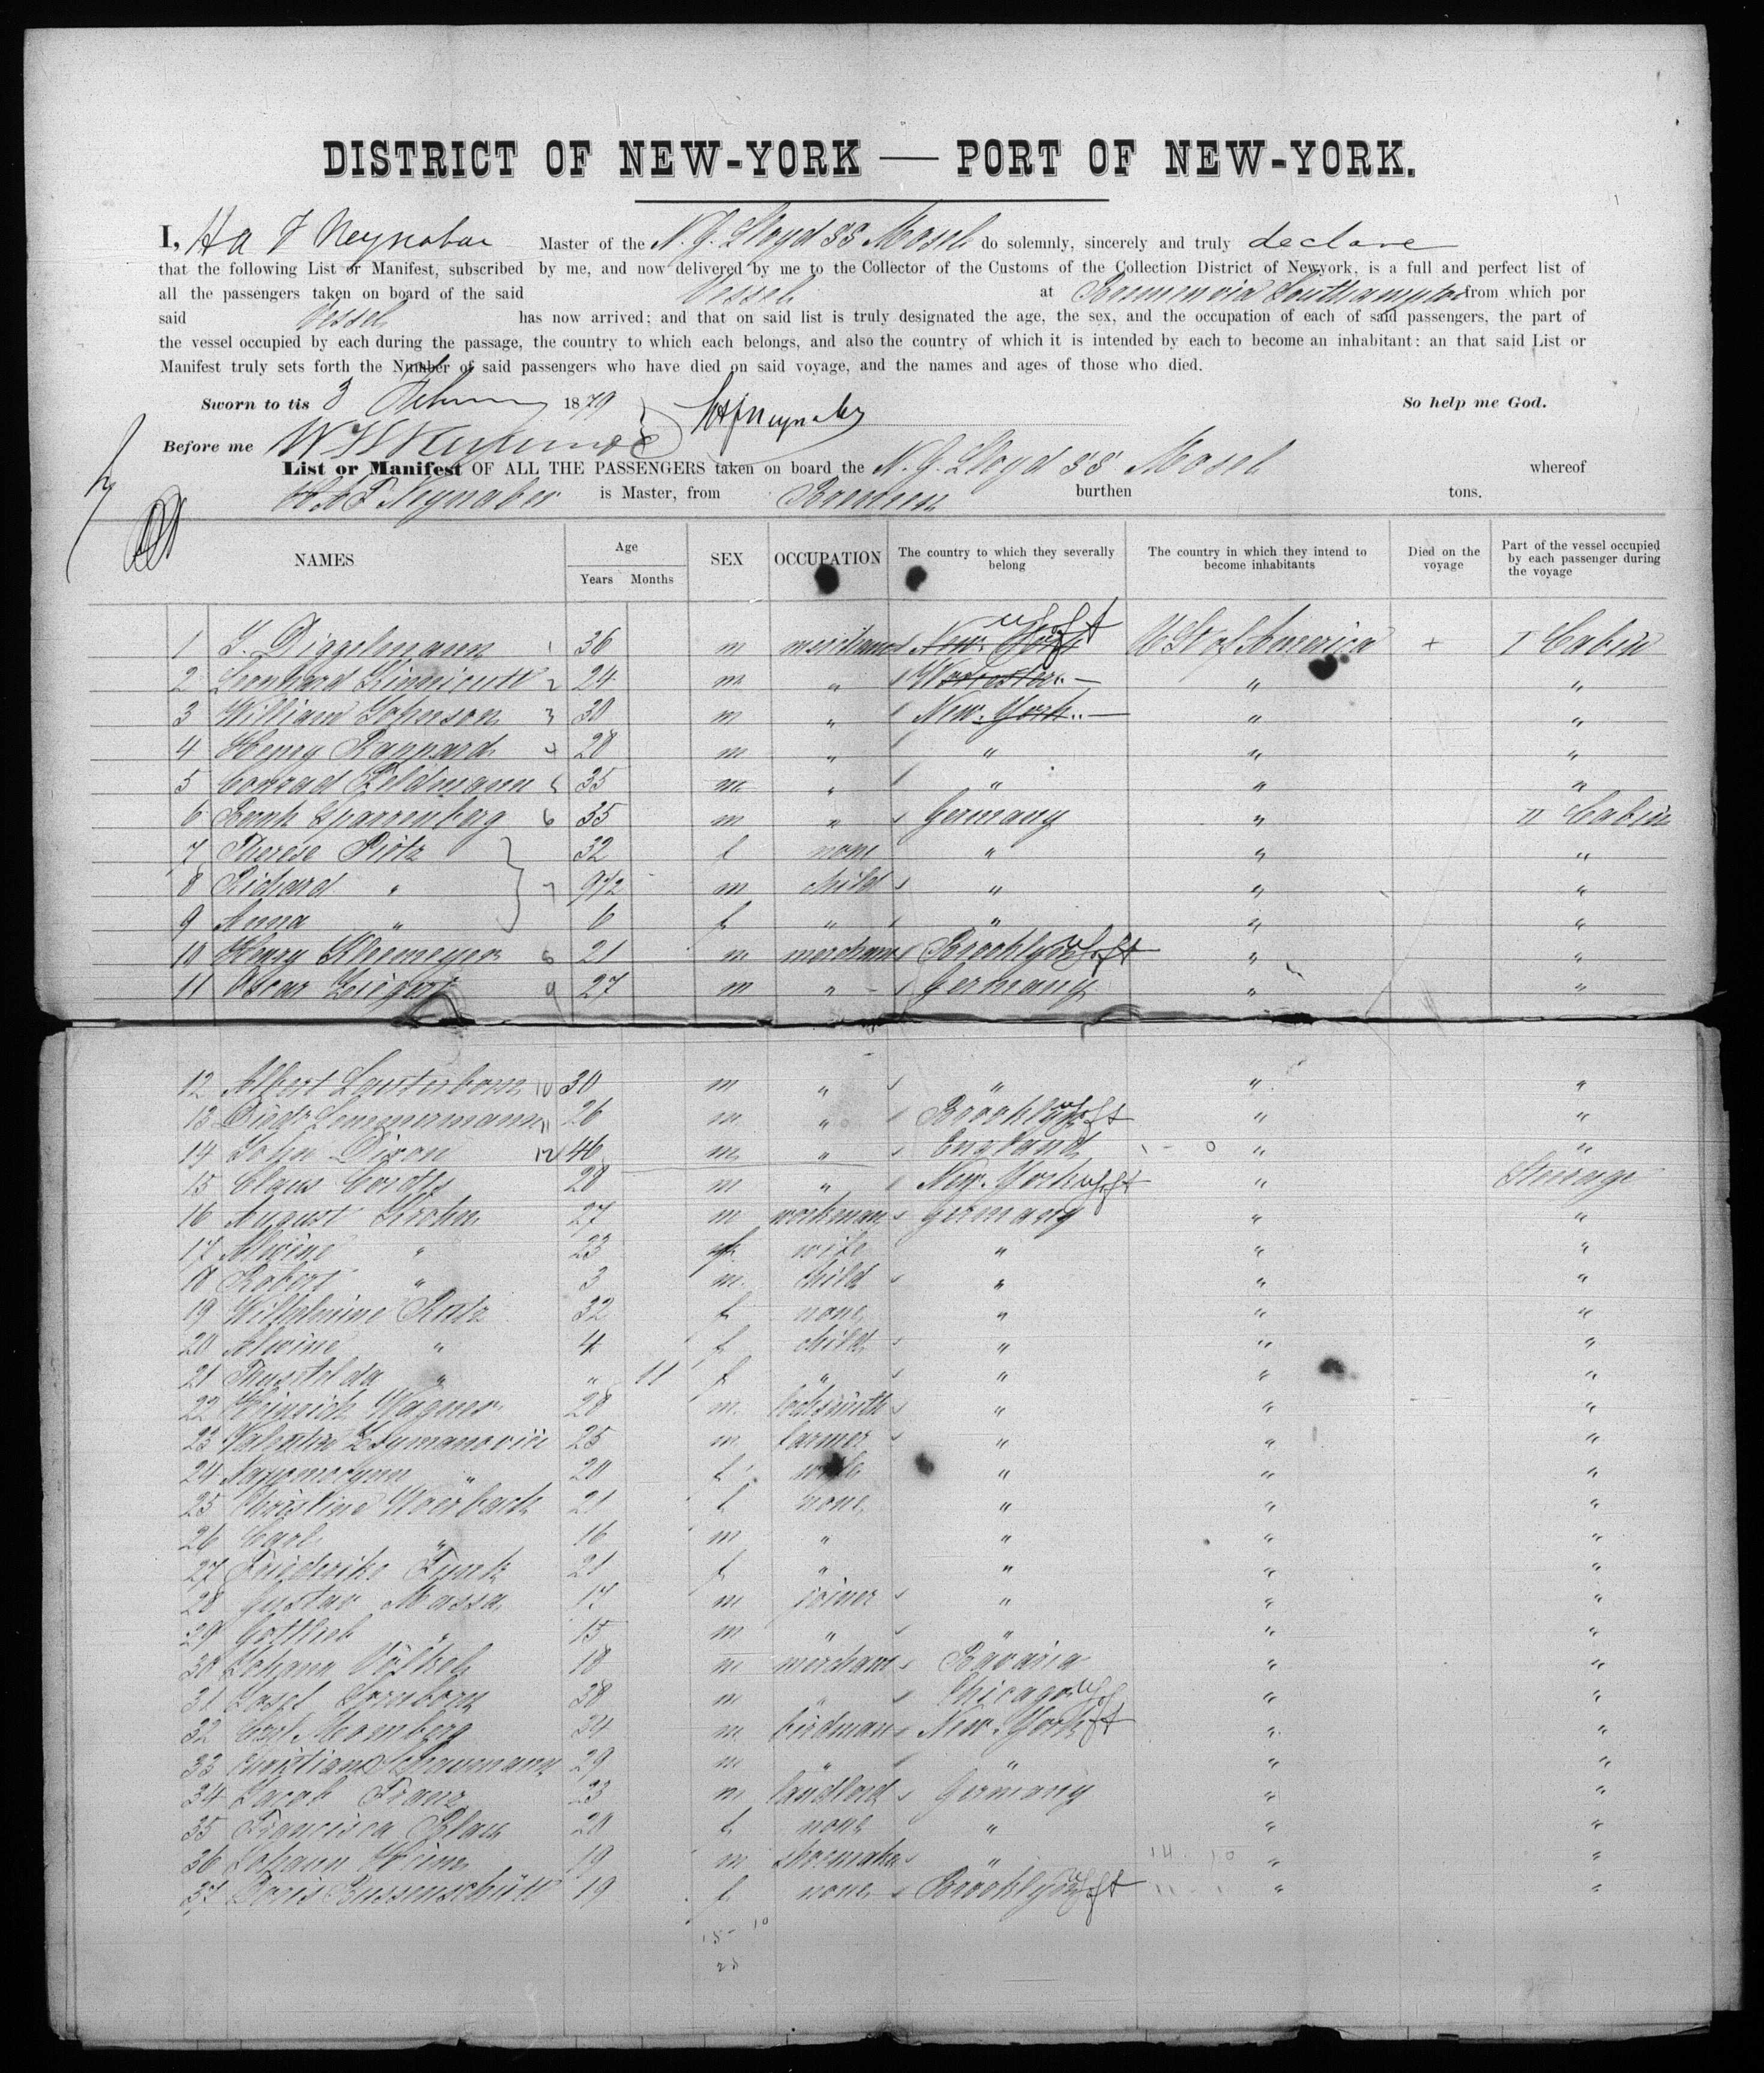 DISTRICT OF NEW-YORK — PORT OF NEW-YORK.
I, H A F Neynaber Master of the N. G. Lloyd SS Mosel do solemnly, sincerely and truly declare
that the following List or Manifest, subscribed by me, and now delivered by me to the Collector of the Customs of the Collection District of Newyork, is a full and perfect list of
all the passengers taken on board of the said Vessel at Bremen via Southampton from which por
said Vessel has now arrived; and that on said list is truly designated the age, the sex, and the occupation of each of said passengers, the part of
the vessel occupied by each during the passage, the country to which each belongs, and also the country of which it is intended by each to become an inhabitant: an that said List or
Manifest truly sets forth the Number of said passengers who have died on said voyage, and the names and ages of those who died.
Sworn to tis 3 February 1879 HAFNeynaber So help me God.
Before me
List or Manifest OF ALL THE PASSENGERS taken on board the N. G. Lloyd SS Mosel whereof
H A F Neynaber is Master, from Bremen burthen tons.
NAMES Age Years Months SEX OCCUPATION The country to which they severally belong The country in which they intend to become inhabitants Died on the voyage Part of the vessel occupied by each passenger during the voyage
1 J. Diggelmann 1 36 m merchant New York U St of America + I Cabin
2 Leonhard Kinnicutt 2 24 m " Worcester " "
3 William Johnson 3 30 m " New-York " "
4 Henry Rappard 4 28 m " " " "
5 Conrad Feldmann 5 35 m " " " "
6 Sparrenberg 6 35 m " Germany " II Cabin
7 Therese Piotz 32 f none " " "
8 Richard " 7 9 1/2 m child " " "
9 Anna " 6 f " " " "
10 Henry Kleemeyer 8 21 m merchant Brooklyn " "
11 Oscar Ziegert 9 27 m " Germany " "
12 Albert Lauterborn 10 30 m " " " "
13 Diedr Lemmermann 11 26 m " Brooklyn " "
14 John Dixon 12 46 m " England " "
15 Claus Cordts 28 m " New-York " Steerage
16 August Krohn 27 m workman Germany " "
17 Alwine " 23 f wife " " "
18 Robert " 3 m child " " "
19 Wilhelmine Ratz 32 f none " " "
20 Alwine " 4 f child " " "
21 Thusnelda " " 11 f " " " "
22 Heinrich Wagner 28 m locksmith " " "
23 Valentin 25 m farmer " " "
24 " 20 f wife " " "
25 Christine Woerbach 21 f none " " "
26 Carl " 16 m " " " "
27 Friederike Funk 21 f " " " "
28 Gustav Massa 17 m joiner " " "
29 Gottlieb " 15 m " " " "
30 Johann Völkel 18 m merchant Bavaria " "
31 Josef Sornborn 38 m " Chicago " "
32 Carl Momberg 34 m birdman New-York " "
33 Christian 29 m " " " "
34 Jacob Franz 23 m landlord Germany " "
35 Francisca Blau 20 f none " " "
36 Johann Heim 19 m shoemaker " " "
37 Doris Bussenschütt 19 f none Brooklyn " "